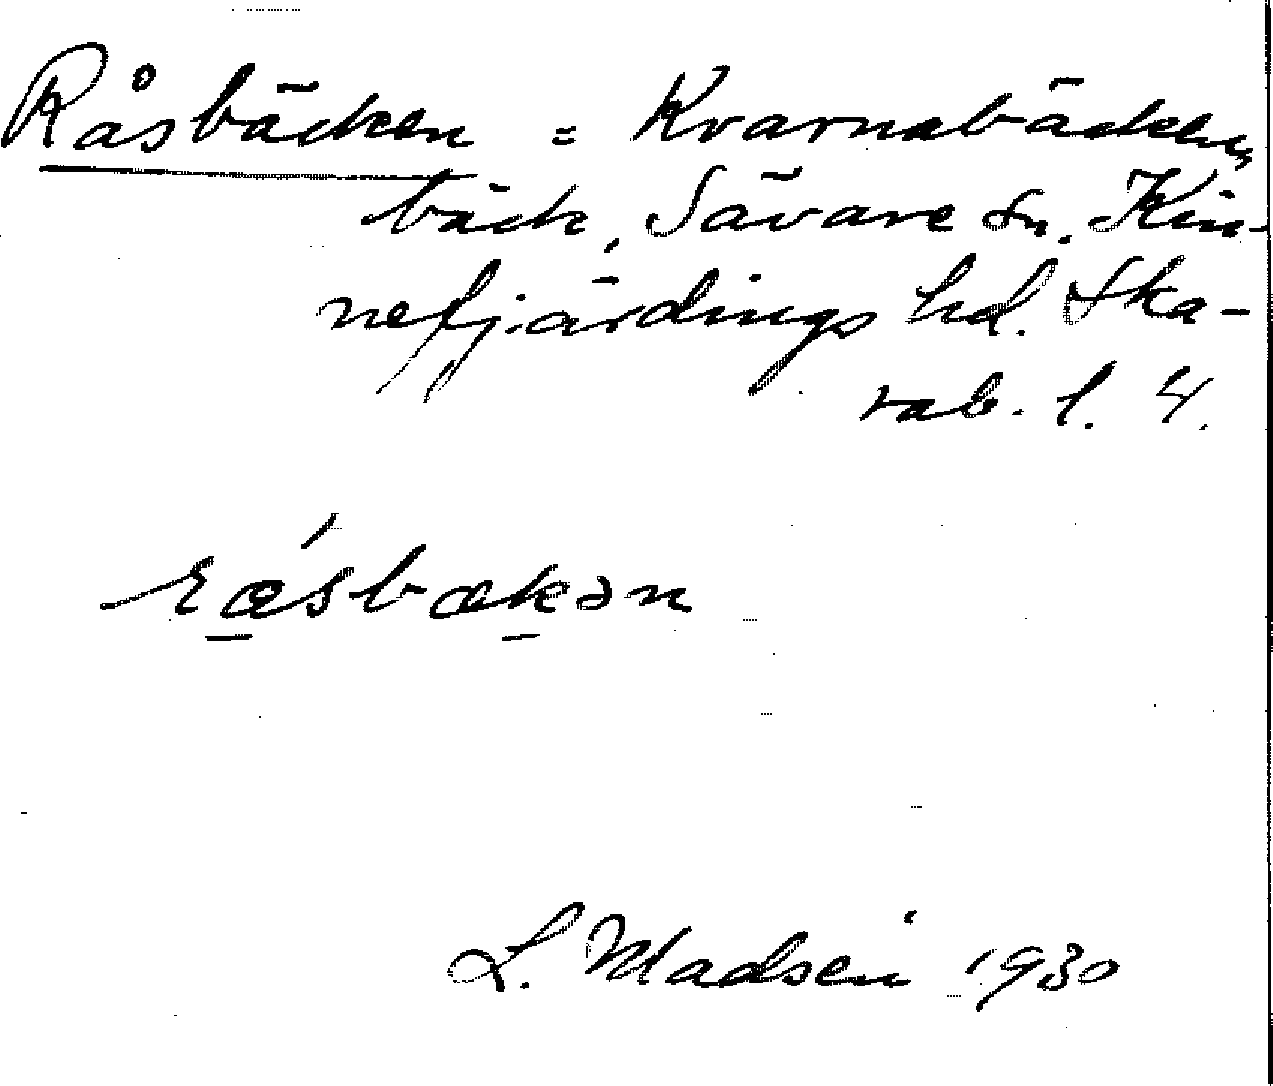 Råsbäcken = Kvarnabäcken
bäck, Sävare sn. Kin-
nefjärdings hd. Ska-
rab. l. 4.
rǽ̱sbæk̠ən
L. Madsén 1930